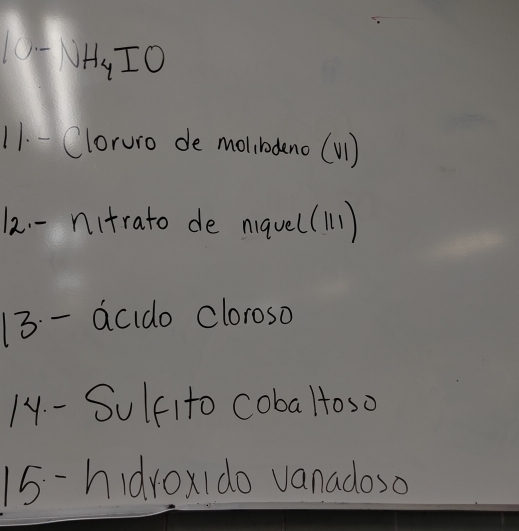 10.- NH4IO
11.- Cloruro de molibdeno (VI)
12.- nitrato de niquel (III)
13.- ácido cloroso
14.- Sulfito cobaltoso
15- hidroxido vanadoso